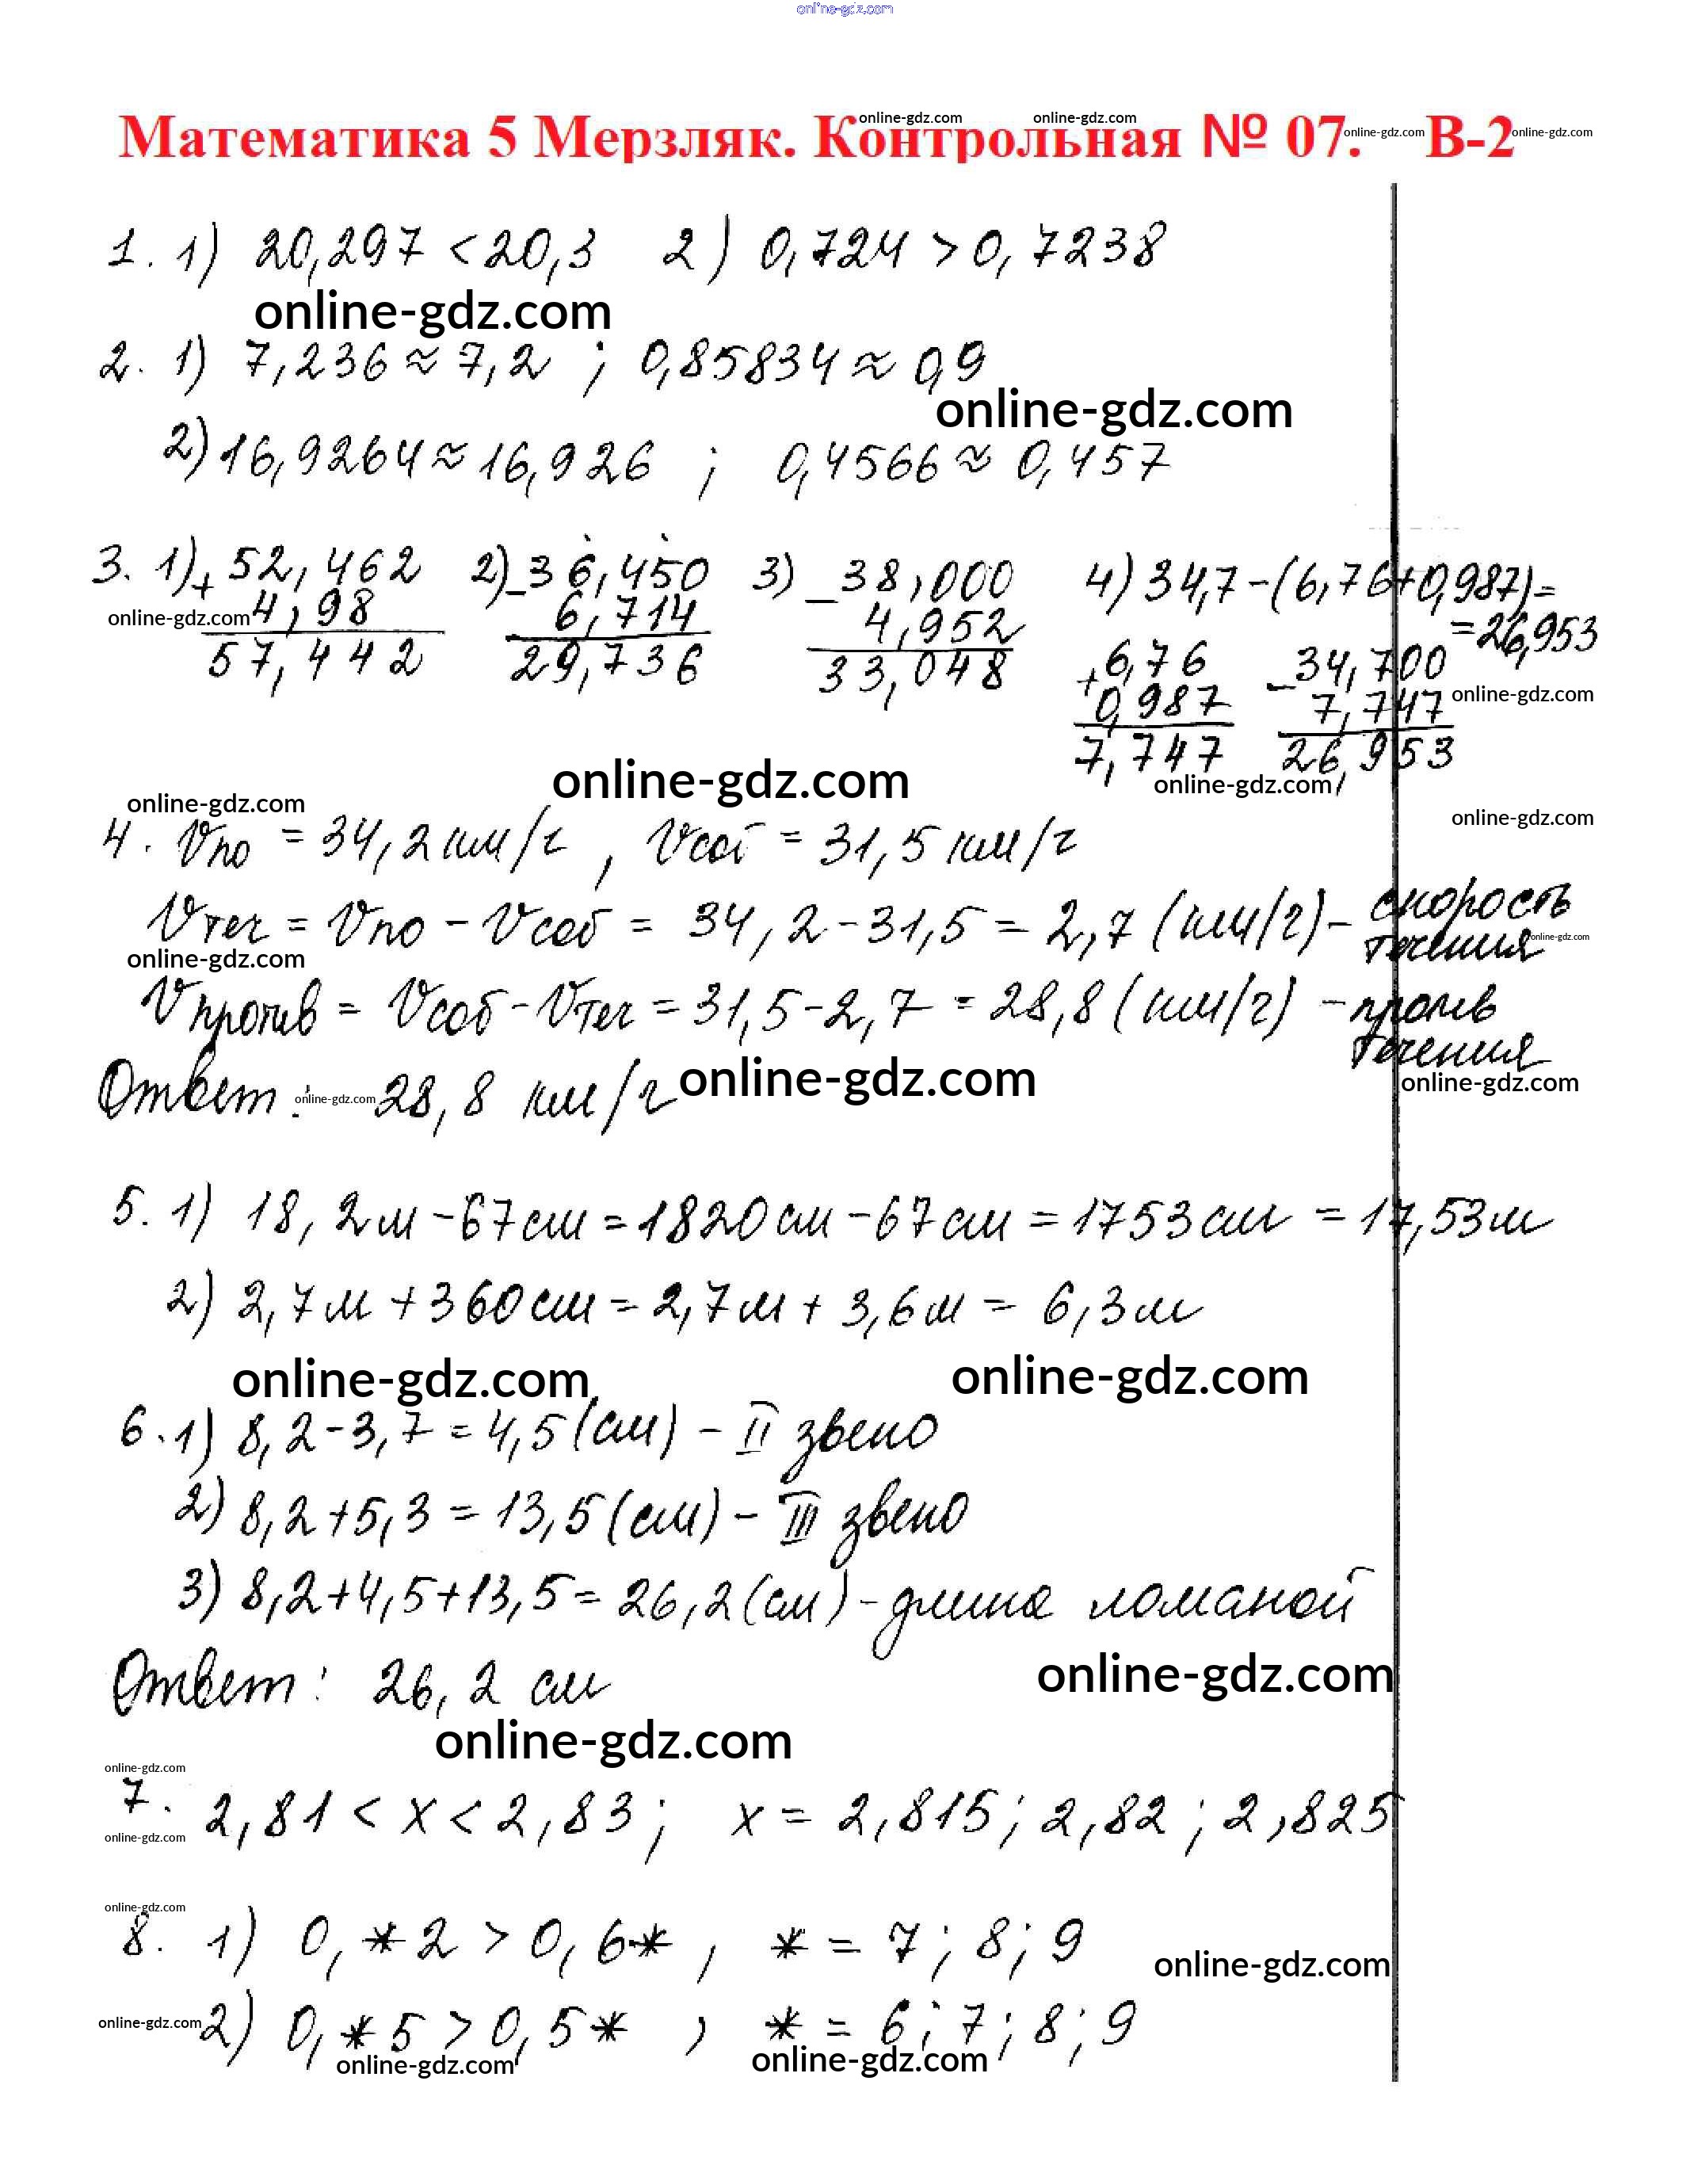 online-gdz.com
online-gdz.com online-gdz.com
Математика 5 Мерзляк. Контрольная № 07. online-gdz.com В-2 online-gdz.com
1. 1) 20,297 < 20,3 2) 0,724 > 0,7238
online-gdz.com
2. 1) 7,236 ≈ 7,2 ; 0,85834 ≈ 0,9
online-gdz.com
2) 16,9264 ≈ 16,926 ; 0,4566 ≈ 0,457
3. 1) + 52,462 2) - 36,450 3) - 38,000 4) 34,7 - (6,76 + 0,987) =
online-gdz.com 4,98 6,714 4,952 = 26,953
57,442 29,736 33,048 + 6,76 - 34,700
0,987 7,747 online-gdz.com
7,747 26,953
online-gdz.com online-gdz.com
online-gdz.com online-gdz.com
4. Vпо = 34,2 км/ч, Vсоб = 31,5 км/ч
Vтеч = Vпо - Vсоб = 34,2 - 31,5 = 2,7 (км/ч) - скорость
течения online-gdz.com
online-gdz.com
Vпротив = Vсоб - Vтеч = 31,5 - 2,7 = 28,8 (км/ч) - против
течения
Ответ: online-gdz.com 28,8 км/ч online-gdz.com
online-gdz.com
5. 1) 18,2м - 67см = 1820см - 67см = 1753см = 17,53м
2) 2,7м + 360см = 2,7м + 3,6м = 6,3м
online-gdz.com online-gdz.com
6. 1) 8,2 - 3,7 = 4,5 (см) - II звено
2) 8,2 + 5,3 = 13,5 (см) - III звено
3) 8,2 + 4,5 + 13,5 = 26,2 (см) - длина ломаной
online-gdz.com
Ответ: 26,2 см
online-gdz.com
online-gdz.com
7. 2,81 < x < 2,83; x = 2,815; 2,82; 2,825
online-gdz.com
online-gdz.com
8. 1) 0,*2 > 0,6*, * = 7; 8; 9
online-gdz.com
online-gdz.com 2) 0,*5 > 0,5*, * = 6; 7; 8; 9
online-gdz.com online-gdz.com